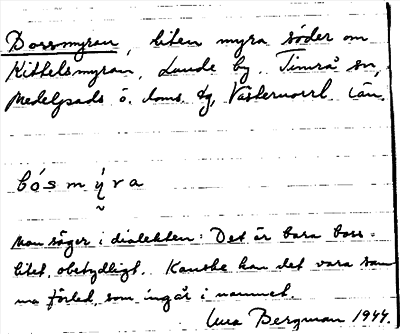 Bossmyran, liten myra söder om
Kittelsmyran, Lunde by. Timrå sn,
Medelpads ö. doms. tg, Västernorrl län.
bósmýra
Man säger i dialekten: Det är bara boss-
litet, obetydligt. Kanske kan det vara sam-
ma förled, som ingår i namnet.
Bergman 1944.